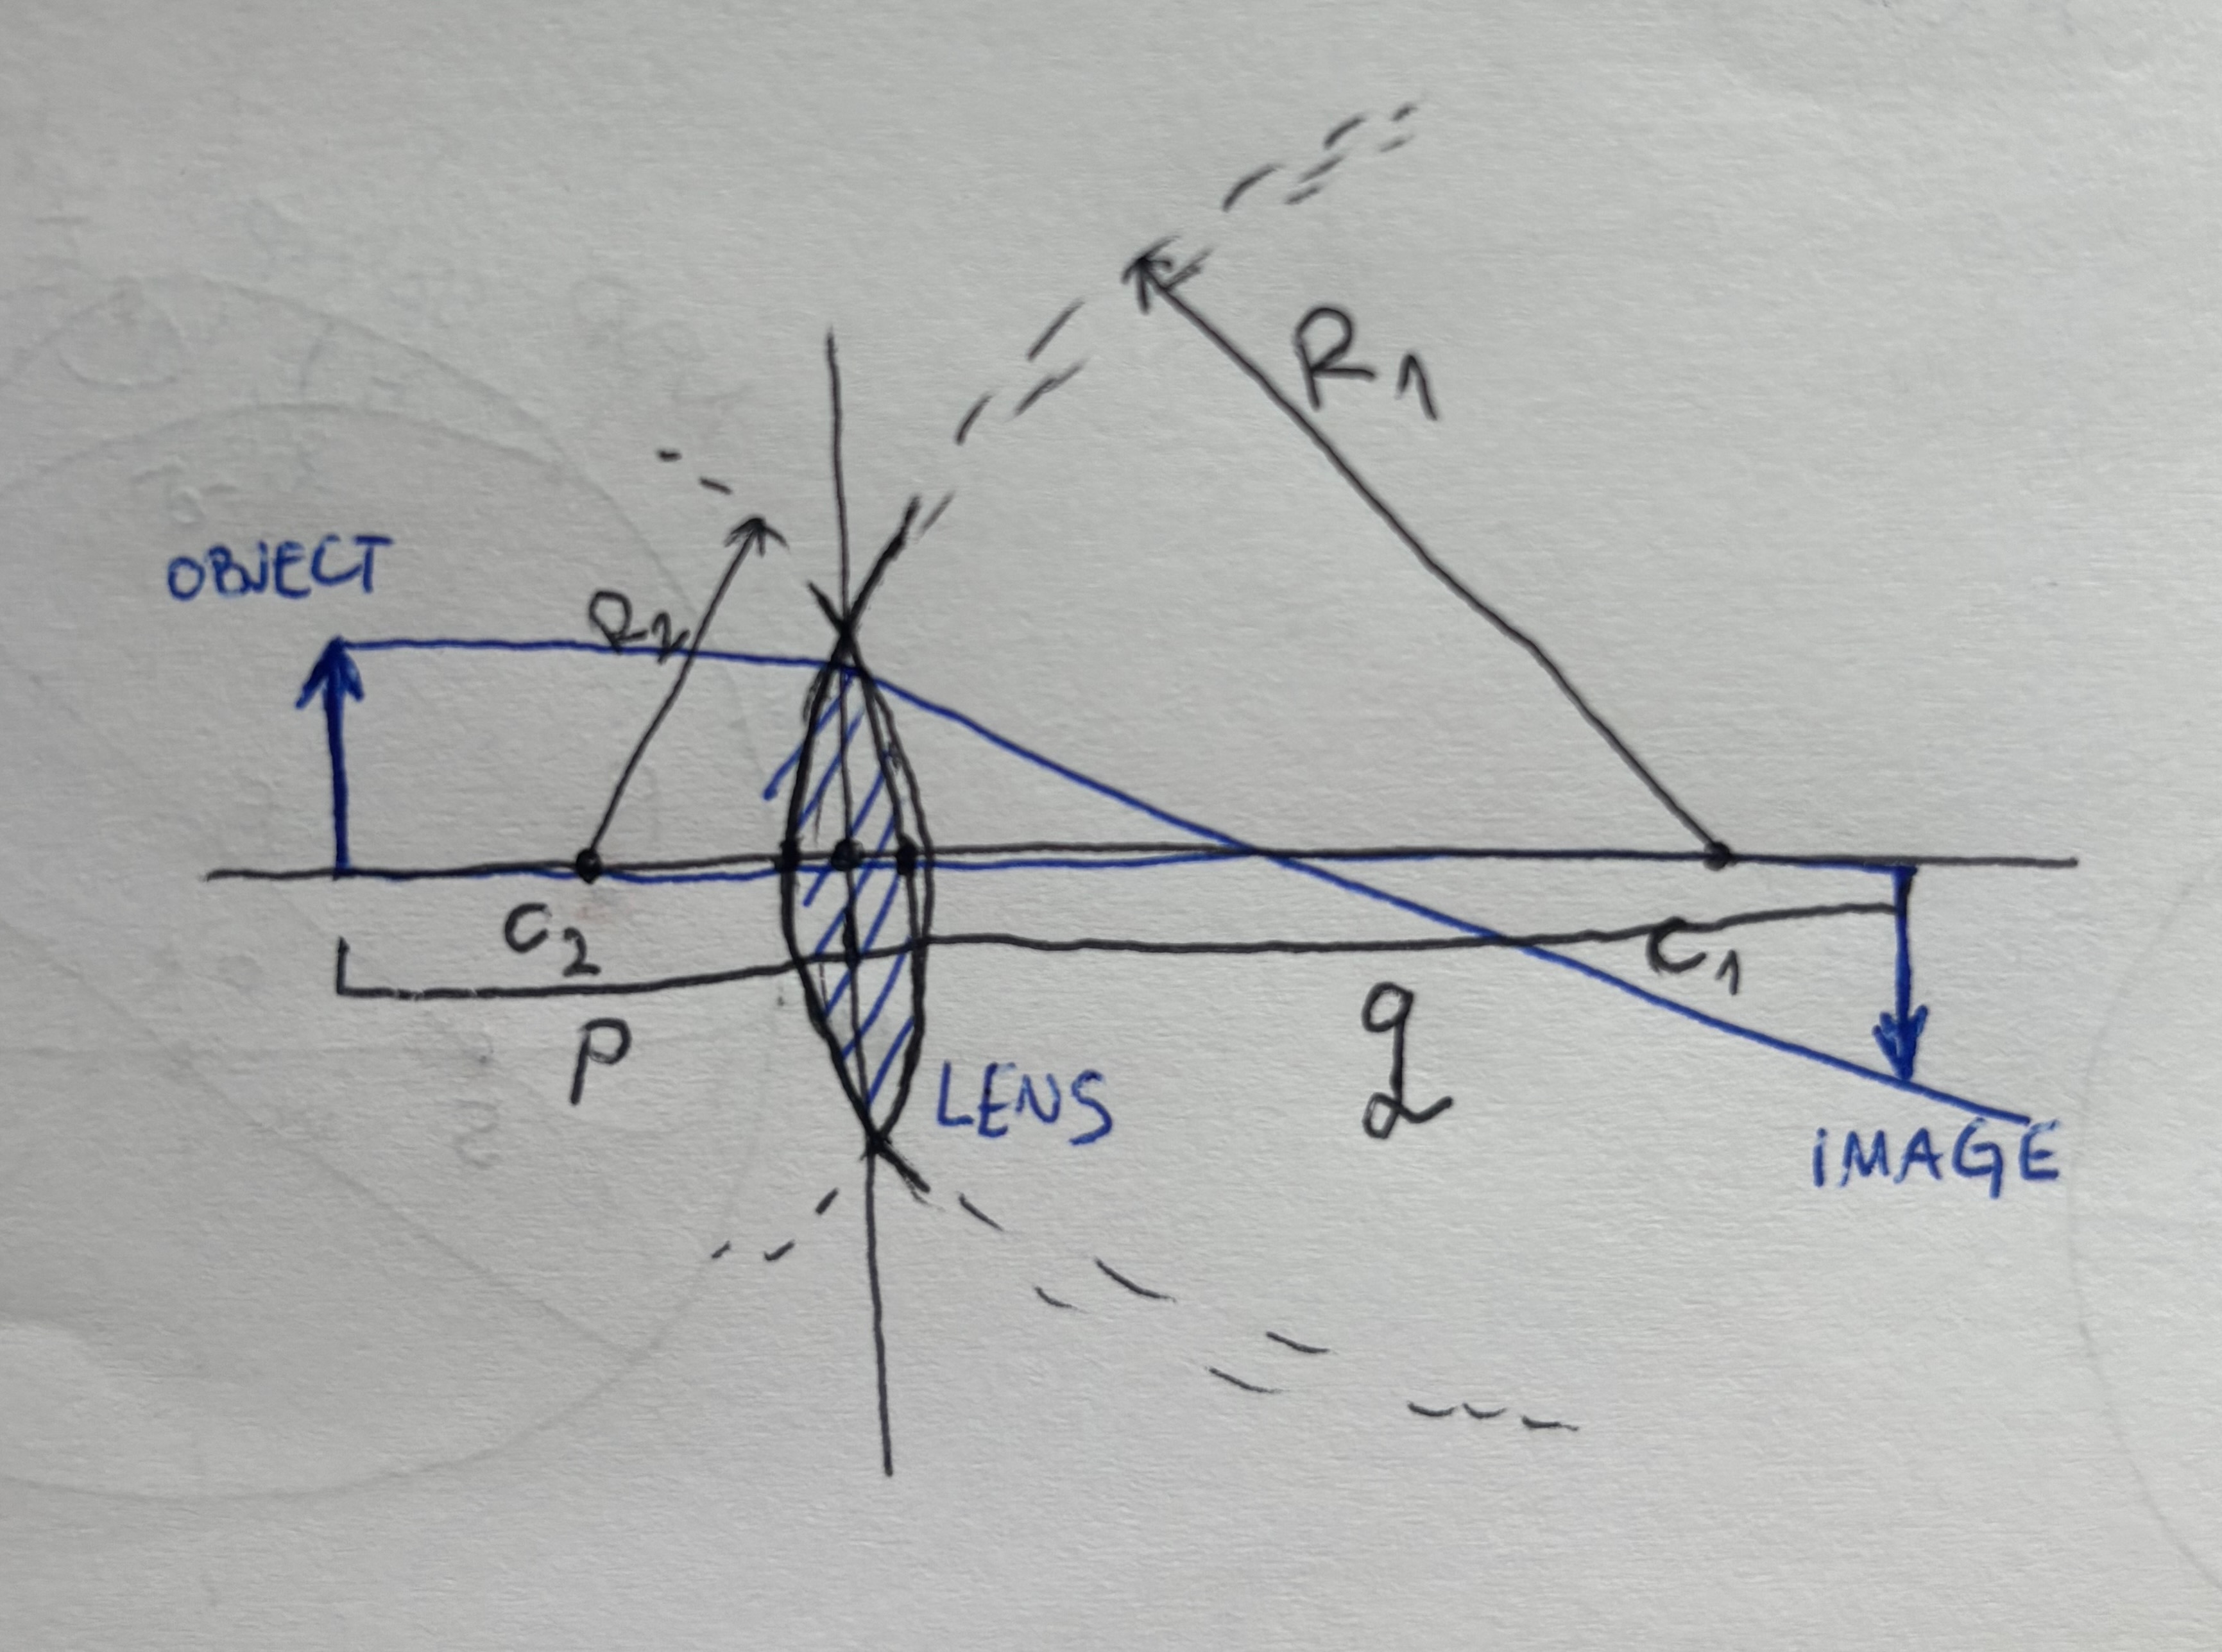 R1
OBJECT
R2
C2
C1
p
q
LENS
IMAGE